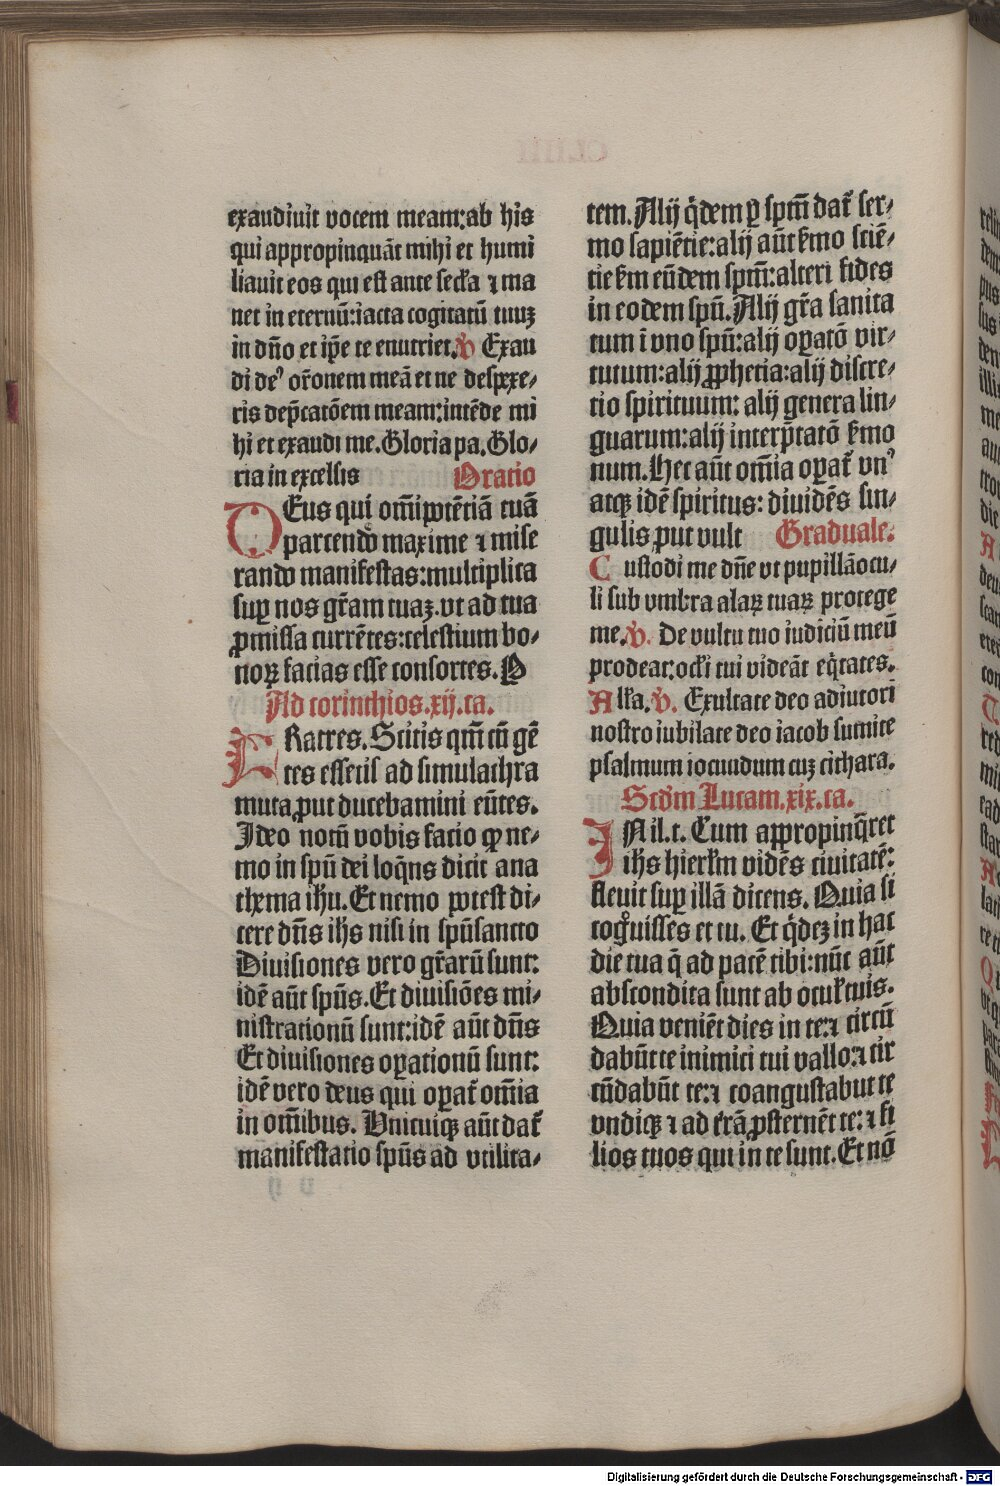 exaudiuit vocem meam:ab his
qui appropinquāt mihi et humi
liauit eos qui est ante secl̄a ⁊ ma
net in eternū:iacta cogitatū tuuꝫ
in dn̄o et ip̄e te enutriet.℣ Exau
di deꝰ or̄onem meā et ne despexe⸗
ris dep̄catōem meam:intēde mi
hi et exaudi me.Gloria pa.Glo⸗
ria in excelsis Oratio
DEus qui om̄ipotētiā tuā
parcendo maxime ⁊ mise
rando manifestas:multiplica
suꝑ nos gr̄am tuaꝫ.vt ad tua
ꝓmissa currētes:celestium bo⸗
noꝝ facias esse consortes.P
Ad corinthios.xij.ca.
FRatres. Scitis qm̄ cū gē
tes essetis ad simulachra
muta ꝓut ducebamini eūtes.
Ideo notū vobis facio ꝙ ne⸗
mo in spū dei loq̄ns dicit ana
thema ihu. Et nemo potest di⸗
cere dn̄s ihs nisi in spūsancto
Diuisiones vero gr̄arū sunt:
idē aūt spūs.Et diuisiōes mi⸗
nistrationū sunt:idē aūt dn̄s
Et diuisiones oꝑationū sunt:
idē vero deus qui oꝑat᷑ om̄ia
in om̄ibus. Vnicuiqꝫ aūt dat᷑
manifestatio spūs ad vtilita⸗
tem.Alij q̇dem ꝑ spm̄ dat᷑ ser⸗
mo sapiētie:alij aūt ẜmo sciē⸗
tie ẜm eūdem spm̄:alteri fides
in eodem spū.Alij gr̄a sanita
tum ī vno spū:alij oꝑatō vir⸗
tutum:alij ꝓphetia:alij discre⸗
tio spirituum: alij genera lin⸗
guarum:alij interp̄tatō ẜmo
num.Hec aūt om̄ia oꝑat᷑ vnꝰ
atqꝫ idē spiritus: diuidēs sin⸗
gulis ꝓut vult Graduale.
Custodi me dn̄e vt pupillā ocu⸗
li sub vmbra alaꝝ tuaꝝ protege
me.℣. De vultu tuo iudiciū meū
prodeat:ocl̄i tui videāt eq̇tates.
All̄a.℣. Exultate deo adiutori
nostro iubilate deo iacob sumite
psalmum iocundum cuꝫ cithara.
Scd̄m Lucam.xix.ca.
IN il.t. Cum appropinq̄ret
ihs hierl̄m vidēs ciuitatē:
fleuit suꝑ illā dicens. Quia si
cognouisses et tu. Et q̇deꝫ in hac
die tua q̄ ad pacē tibi:nūc aūt
abscondita sunt ab ocul̄ tuis.
Quia veniēt dies in te:⁊ circū
dabūt te inimici tui vallo:⁊ cir
cūdabūt te:⁊ coangustabūt te
vndiqꝫ ⁊ ad t̄rā ꝓsternēt te:⁊ fi
lios tuos qui in te sunt.Et nō
Digitalisierung gefördert durch die Deutsche Forschungsgemeinschaft - DFG